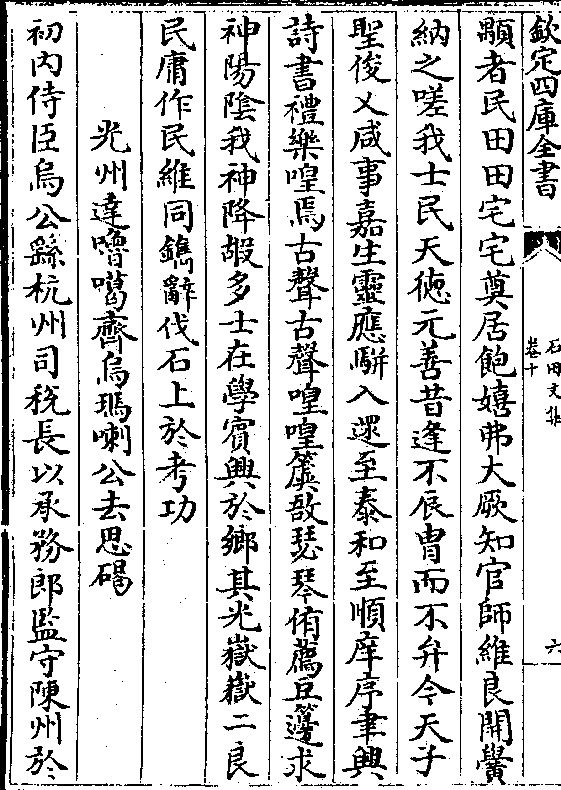 欽定四庫全書
石田文集
卷十
六
顒者民田田宅宅奠居飽嬉弗大厥知官師維良開黌
納之嗟我士民天徳元善昔逢不辰胄而不弁今天子
聖俊乂咸事嘉生靈應駢入遝至泰和至順庠序聿興
詩書禮樂喤焉古聲古聲喤喤簴敔瑟琴侑薦豆籩求
神陽陰我神降嘏多士在學賓興於鄉其光嶽嶽二良
民庸作民維同鐫辭伐石上於考功
光州達嚕噶齊烏瑪喇公去思碣
初内侍臣烏公繇杭州司稅長以承務郎監守陳州於